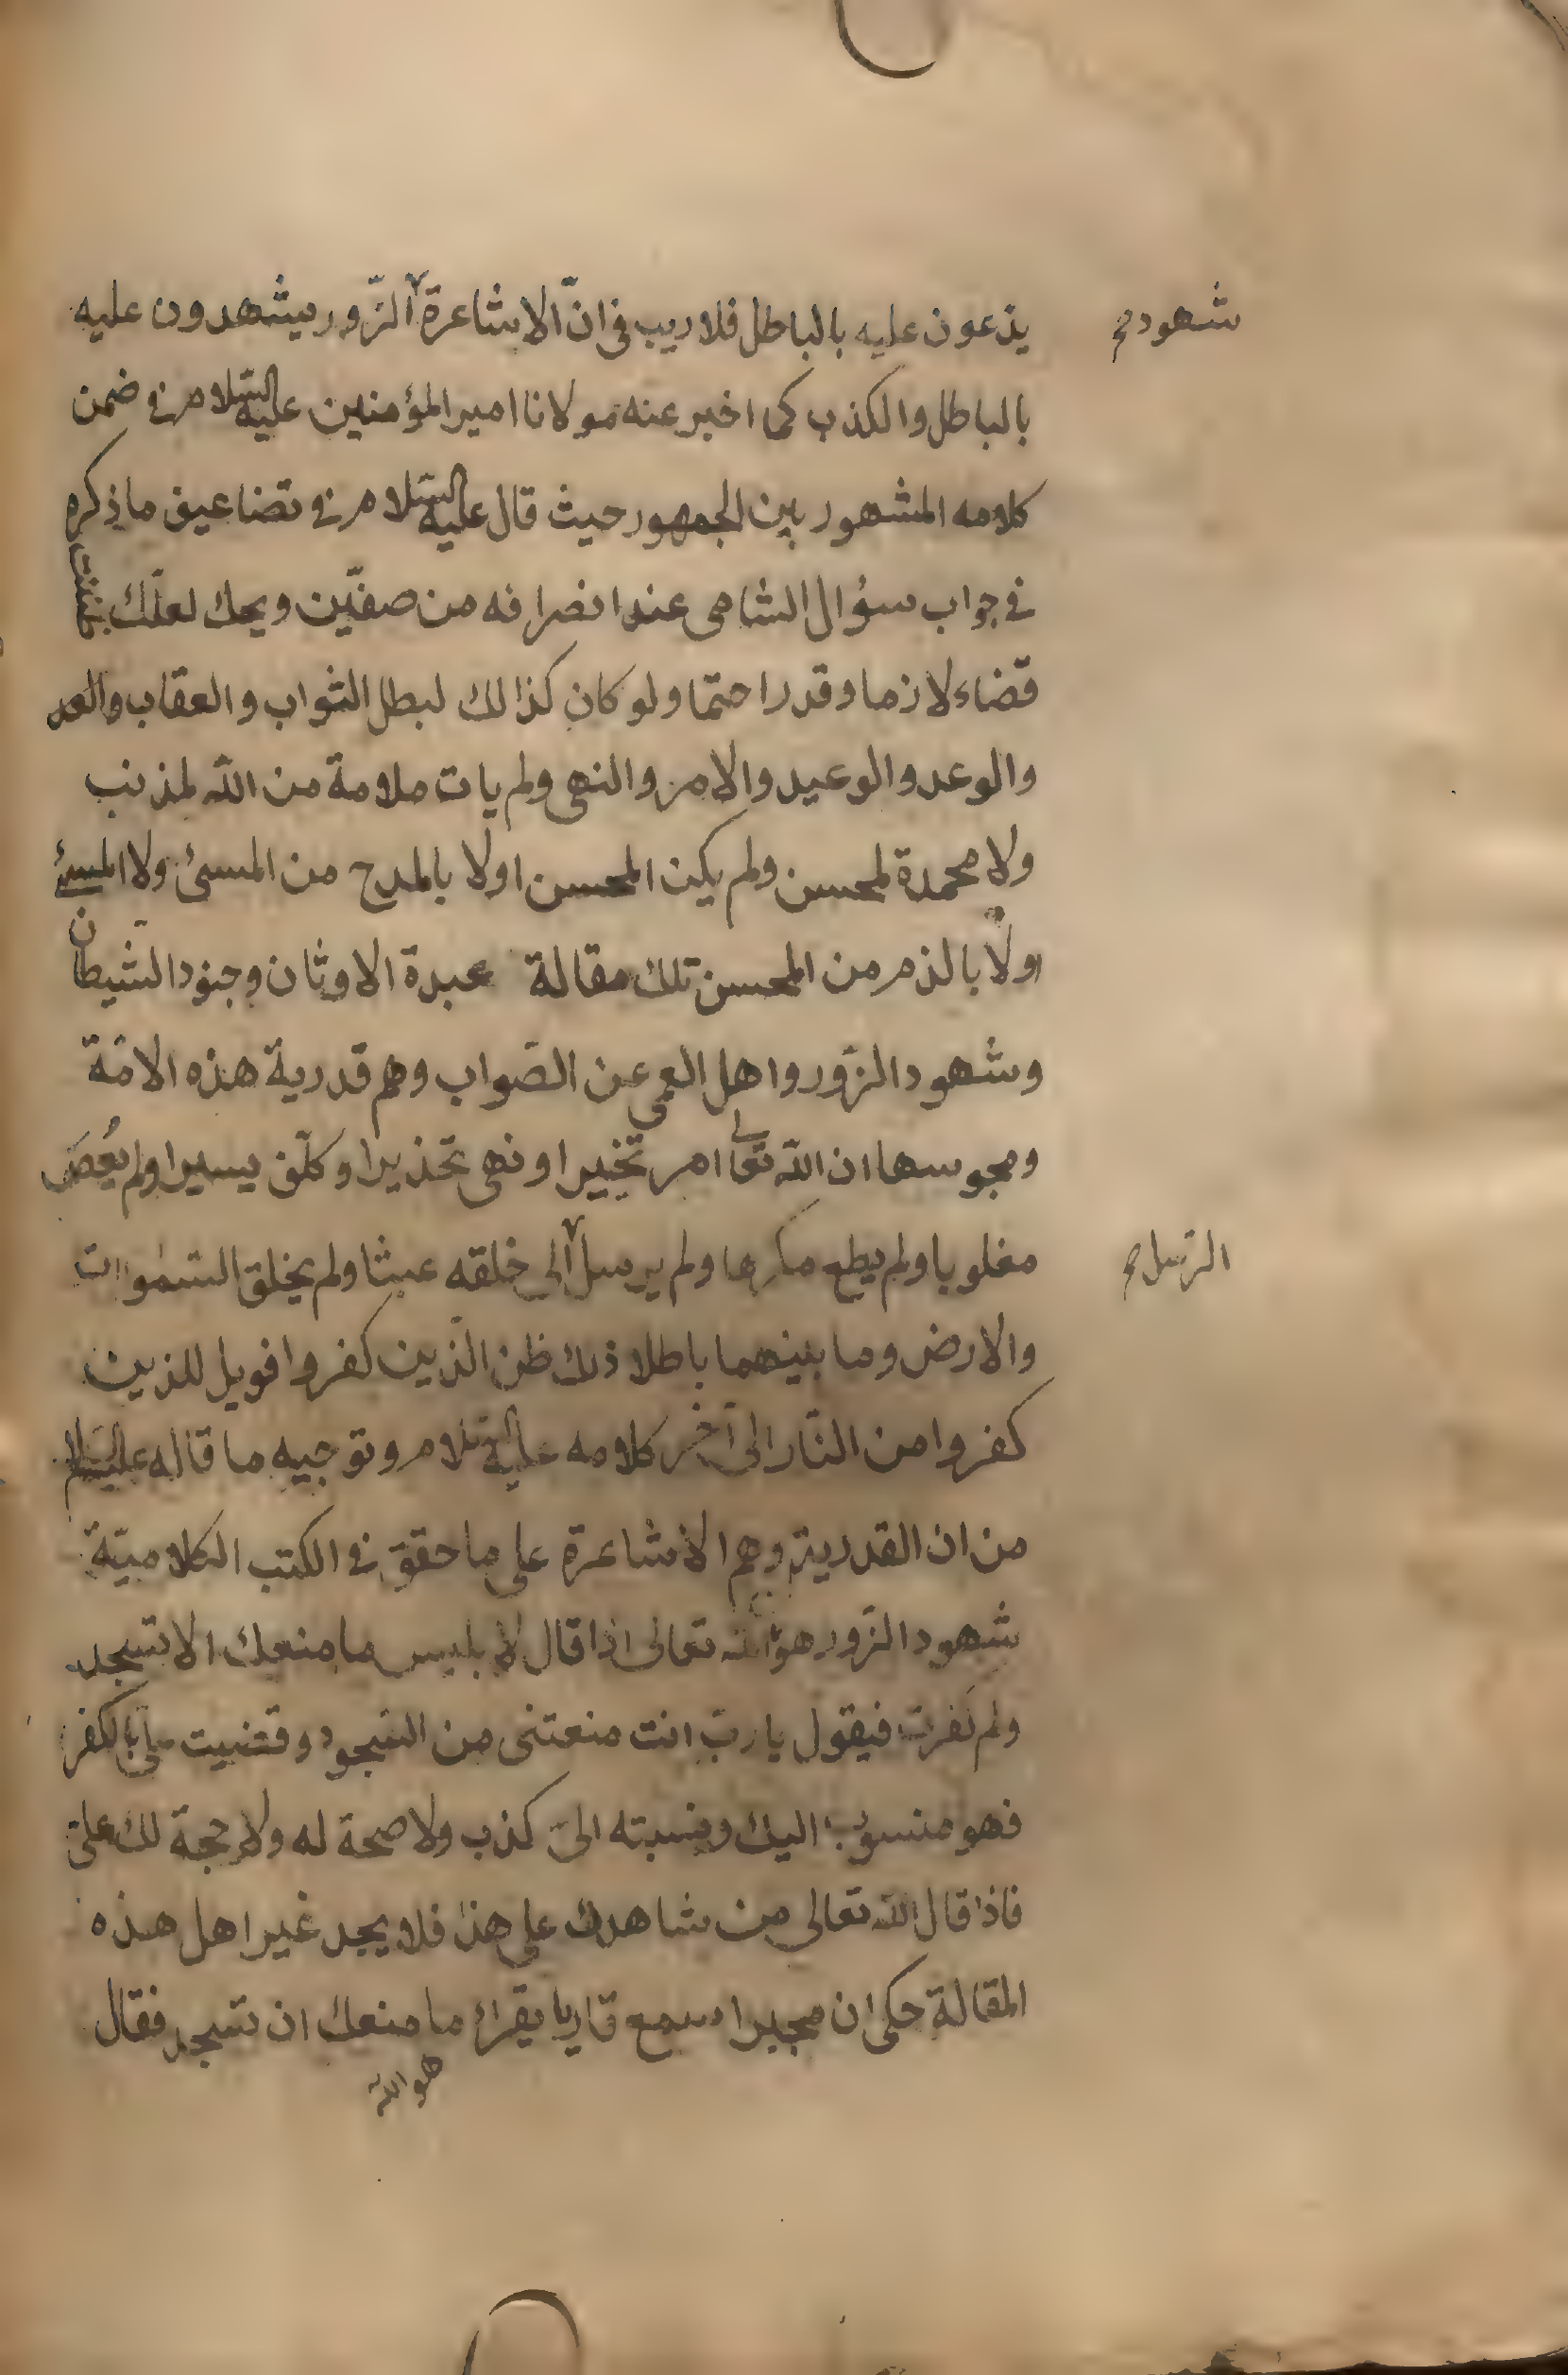 يذعون عليه بالباطل فلا ريب فى انّ الاشاعرة الزّور يشهدون عليه
شهود صح
بالباطل والكذب كما اخبر عنه مولانا امير المؤمنين عليه السّلام فى ضمن
كلامه المشهور بين الجمهور حيث قال عليه السّلام فى تضاعيف ما ذكره
فى جواب سؤال الشامى عند انصرافه من صفّين ويحك لعلّك ظننت
قضاء لازما وقدرا حتما ولو كان كذالك لبطل الثواب والعقاب والعد
والوعد والوعيد والامر والنهى ولم يات ملامة من اللّه لمذنب
ولا محمدة لمحسن ولم يكن المحسن اولا بالمدح من المسئ ولا المسئ
اولا بالذم من المحسن تلك مقالة عبدة الاوثان وجنود الشيطان
وشهود الزّور واهل العمى عن الصّواب وهم قدرية هذه الامّة
ومجوسها ان اللّه تعالى امر تخييرا ونهى تحذيرا وكلّف يسيرا ولم يُعصَ
مغلوبا ولم يطع مكرها ولم يرسل الى خلقه عبثا ولم يخلق السّموات
الرّسل صح
والارض وما بينهما باطلا ذلك ظن الّذين كفروا فويل للذين
كفروا من النّار الى آخر كلامه عليه السّلام وتوجيه ما قاله عليه السّلام
من ان القدرية وهم الاشاعرة على ما حقق فى الكتب الكلاميّة
شهود الزّور هو انّه تعالى اذا قال لابليس ما منعك الا تسجد
ولم كفرت فيقول يا ربّ انت منعتنى من السّجود وقضيت علىّ بالكفر
فهو منسوب اليك ونسبته الىّ كذب ولا صحة له ولا حجة لك علىّ
فاذا قال اللّه تعالى من شاهدك على هذا فلا يجد غير اهل هذه
المقالة حكى ان مجبرا سمع قاريا يقراء ما منعك ان تسجد فقال
هو اللّه